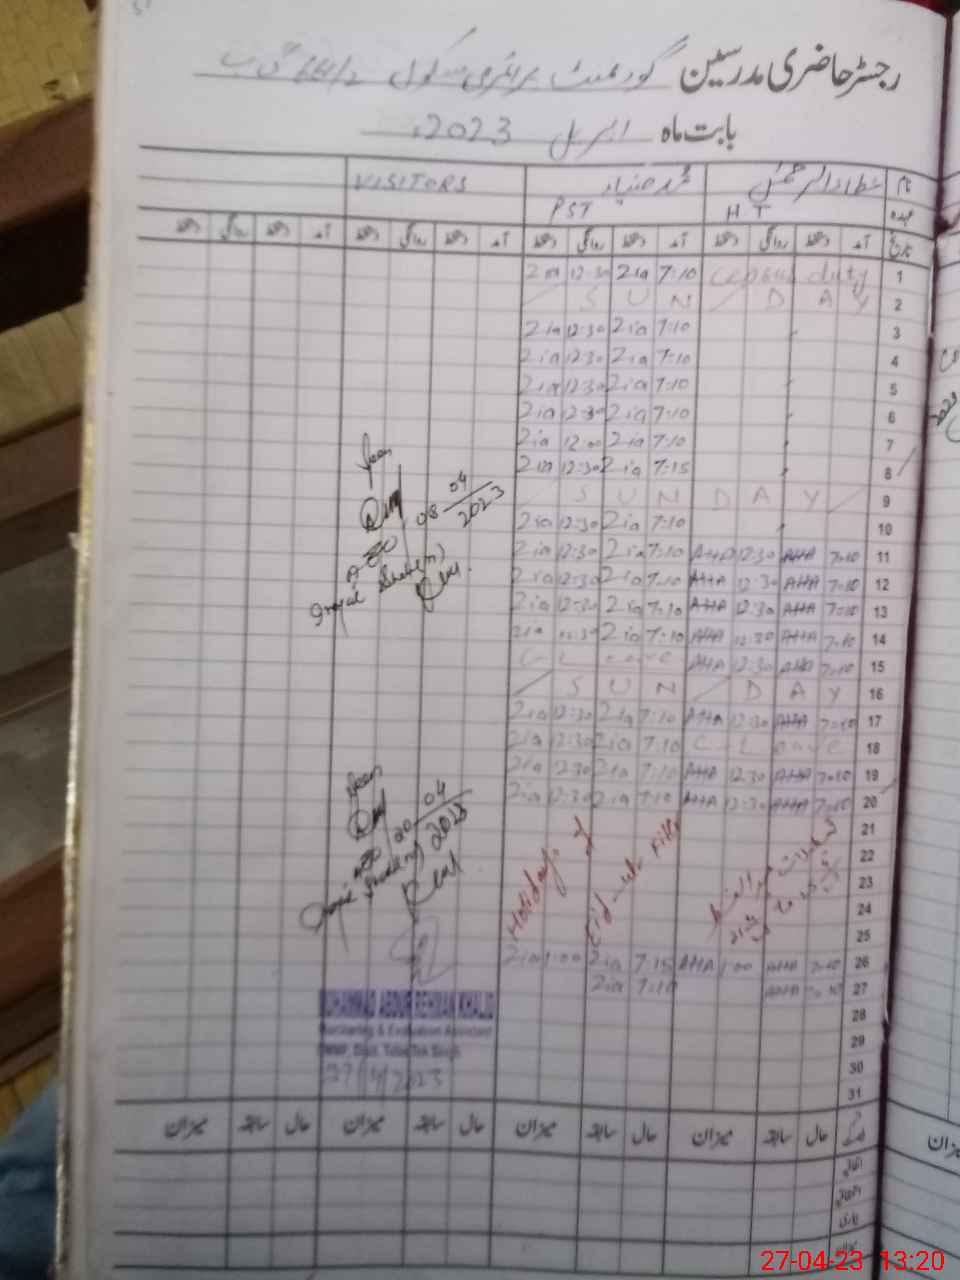 رجسٹر حاضری مدرسین گورنمنٹ پرائمری سکول 664/2 گ ب
بابت ماہ اپریل 2023ء
نام عطاء الرحمٰن محمد ضیاء VISITORS
عہدہ HT PST
تاریخ آمد دستخط روانگی دستخط آمد دستخط روانگی دستخط آمد دستخط روانگی دستخط آمد دستخط روانگی دستخط
1 duty 7:10 Zia 12:30 Zia
2 S U N D A Y
3 7:10 Zia 12:30 Zia
4 7:10 Zia 12:30 Zia
5 7:10 Zia 12:30 Zia
6 7:10 Zia 12:30 Zia
7 7:10 Zia 12:00 Zia
8 7:15 Zia 12:30 Zia
9 S U N D A Y
10 7:10 Zia 12:30 Zia
11 7:10 AHA 12:30 AHA 7:10 Zia 12:30 Zia
12 7:10 AHA 12:30 AHA 7:10 Zia 12:30 Zia
13 7:10 AHA 12:30 AHA 7:10 Zia 12:30 Zia
14 7:10 AHA 12:30 AHA 7:10 Zia 12:30 Zia
15 7:10 AHA 12:30 AHA C-Leave
16 S U N D A Y
17 7:10 AHA 12:30 AHA 7:10 Zia 12:30 Zia
18 C-Leave 7:10 Zia 12:30 Zia
19 7:10 AHA 12:30 AHA 7:10 Zia 12:30 Zia
20 7:10 AHA 12:30 AHA 7:10 Zia 12:30 Zia
21
22
23
24
25
Holidays of
Eid-ul-Fitr
26 7:10 AHA 1:00 AHA 7:15 Zia 1:00 Zia
27 7:10 AHA 7:10 Zia
28
29
30
31
Seen
AEO
08/04/2023
Seen
AEO
20/04/2023
MUHAMMAD ABDUR REHMAN KHALID
Monitoring & Evaluation Assistant
Distt. Toba Tek Singh
27/4/2023
حال سابقہ میزان حال سابقہ میزان حال سابقہ میزان حال سابقہ میزان
اتفاقی
بیماری
میزان
27-04-23 13:20